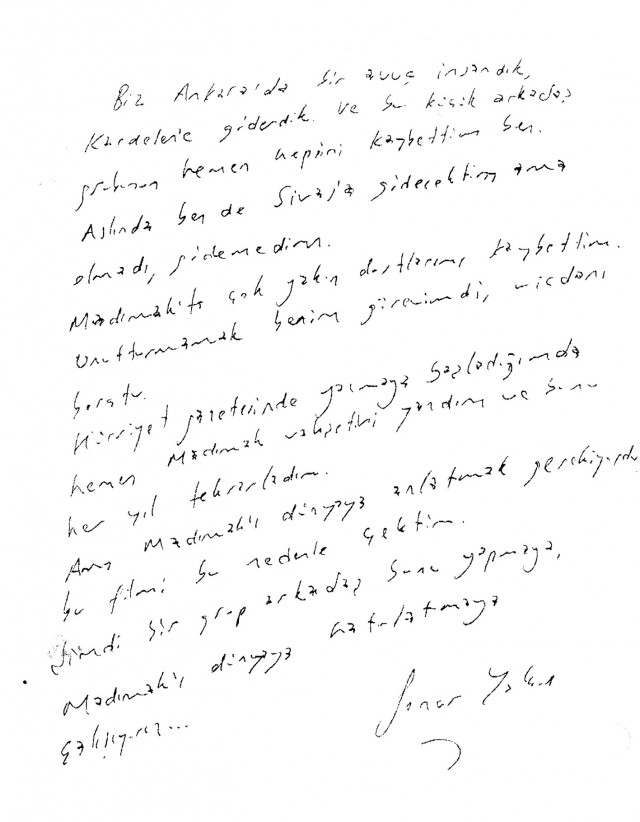 Biz Ankara'da bir avuç insandık,
Kardelen'e giderdik. Ve bu küçük arkadaş
grubunun hemen hepsini kaybettim ben.
Aslında ben de Sivas'a gidecektim ama
olmadı, gidemedim.
Madımak'ta çok yakın dostlarımı kaybettim.
Unutturmamak benim görevimdi, vicdani
borçtu.
Hürriyet gazetesinde yazmaya başladığımda
hemen Madımak vahşetini yazdım ve bunu
her yıl tekrarladım.
Ama Madımak'ı dünyaya anlatmak gerekiyordu,
bu filmi bu nedenle çektim.
Şimdi bir grup arkadaş bunu yapmaya,
Madımak'ı dünyaya hatırlatmaya
çalışıyoruz...
Soner Yalçın